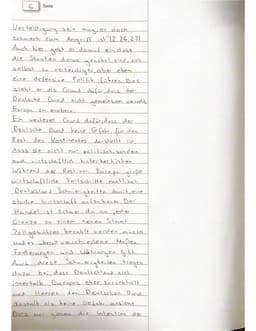 6 Seite
Verteidigung sein mag, er doch
schwach zum Angriff ist" (Z. 26, 27).
Auch hier geht es darum, dass
die Staaten darauf
selbst zu verteidigen, aber eben
eine defensive Politik führen. Dies
sieht er als Grund dafür, dass der
Deutsche Bund nicht
Europa zu erobern.
Ein weiterer Grund dafür, dass der
Deutsche Bund keine Gefahr für den
Rest des Kontinents darstellt ist
dass sie nicht nur politisch, sondern
auch wirtschaftlich hinterher hinken.
Während der Rest von Europa große
wirtschaftliche Fortschritte macht, hat
Deutschland Schwierigkeiten damit eine
starke Wirtschaft aufzubauen. Der
Handel ist schwer, da an jeder
Grenze zu einem neuen Staat
Zollgebühren bezahlt werden müssen
und es überall verschiedene Maße,
und Währungen gibt.
Auch diese Schwierigkeiten tragen
dazu bei, dass Deutschland sich
innerhalb Europas eher zurückhält
und Heeren den Deutschen Bund
deshalb als keine Gefahr ansieht.
Dazu die Intention der